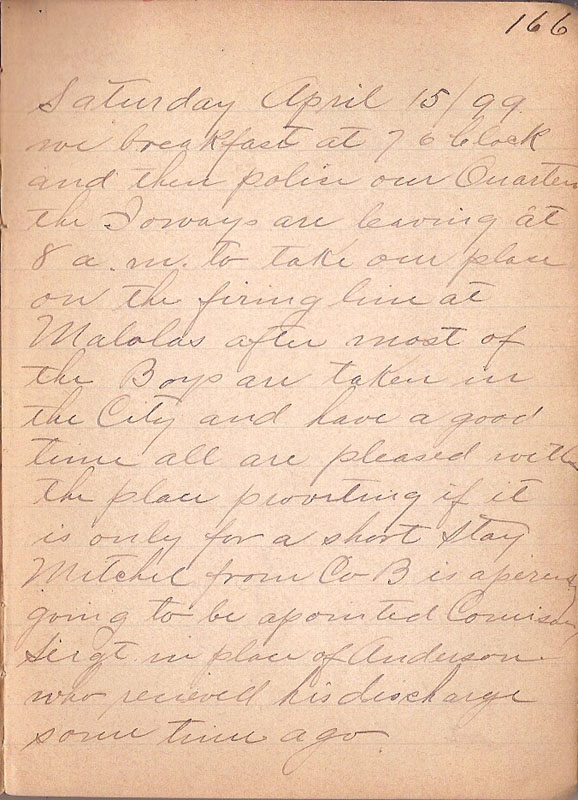 166
Saturday April 15/99
we breakfast at 7 o Clock
and then police our Quarters
the Ioways are leaving at
8 a.m. to take our place
on the firing line at
Malolas after most of
the Boys are taken in
the City and have a good
time all are pleased with
the place provieting if it
is only for a short Stay
Mitchel from Co B is
going to be apointed Comisary
Sergt in place of Anderson
who recieved his discharge
some time ago